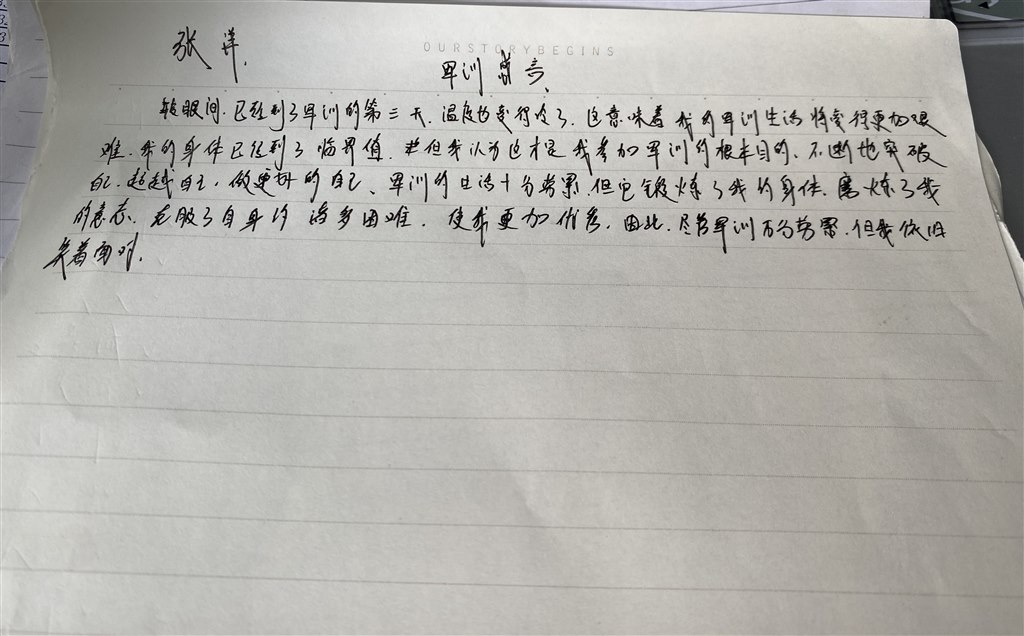 张洋.
OURSTORYBEGINS
军训
转眼间.已经到了军训的第三天.温度也变得冷了.这意味着我的军训生活将变得更加艰
难.我的身体已经到了临界值.但我认为这才是我参加军训的根本目的、不断地突破
自己.超越自己,做更好的自己、军训的生活十分劳累.但它锻炼了我的身体.磨炼了我
的意志、克服了自身的诸多困难.使我更加优秀.因此.尽管军训万分劳累.但我依旧
笑着面对.